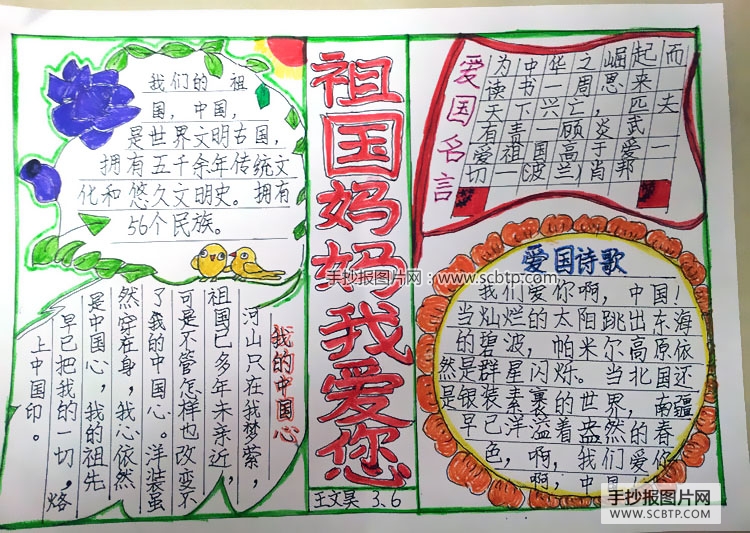 我们的 祖
国，中国，
是世界文明古国，
拥有五千余年传统文
化和悠久文明史。拥有
56个民族。
我的中国心
河山只在我梦萦，
祖国已多年未亲近，
可是不管怎样也改变不
了我的中国心。洋装虽
然穿在身，我心依然
是中国心，我的祖先
早已把我的一切，烙
上中国印。
祖国妈妈我爱您
王文昊 3、6
爱国名言
为中华之崛起而
读书一周恩来
天下兴亡，匹夫
有责一顾炎武
爱祖国高于爱一
切一(波兰)肖邦
爱国诗歌
我们爱你啊，中国！
当灿烂的太阳跳出东海
的碧波，帕米尔高原依
然是群星闪烁。当北国还
是银装素裹的世界，南疆
早已洋溢着盎然的春
色，啊，我们爱你
啊，中
手抄报图片网：www.scbtp.com
手抄报图片网
WWW.SCBTP.COM